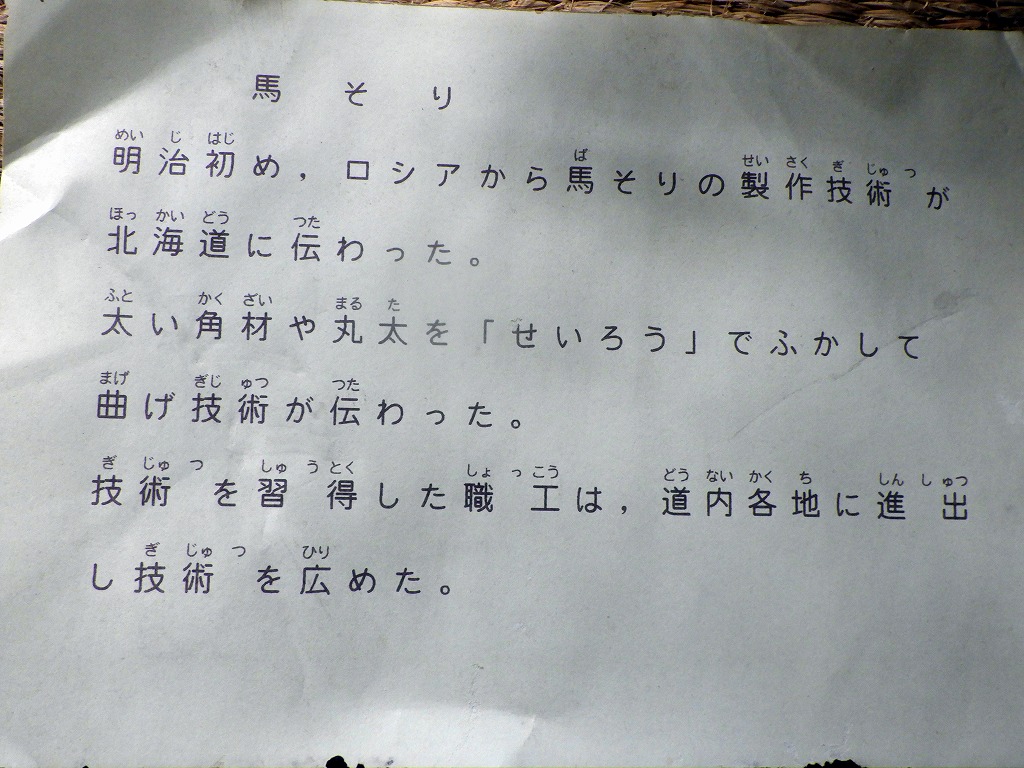 馬そり
明治初め，ロシアから馬そりの製作技術が
北海道に伝わった。
太い角材や丸太を「せいろう」でふかして
曲げ技術が伝わった。
技術を習得した職工は，道内各地に進出
し技術を広めた。